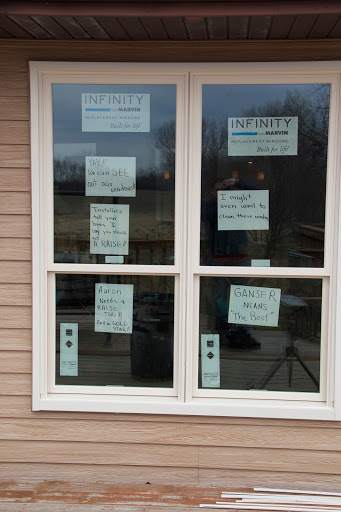 INFINITY
from MARVIN
REPLACEMENT WINDOWS
Built for life
YAY!
We can SEE
out our
windows!!
Installers
tell your
boss I
say you should
get
A RAISE!!
Aaron
Needs a
RAISE
TOO!!
And a GOLD
STAR!
INFINITY
from MARVIN
REPLACEMENT WINDOWS
Built for life
I might
even want to
clean these windows
GANSER
MEANS
"The Best"